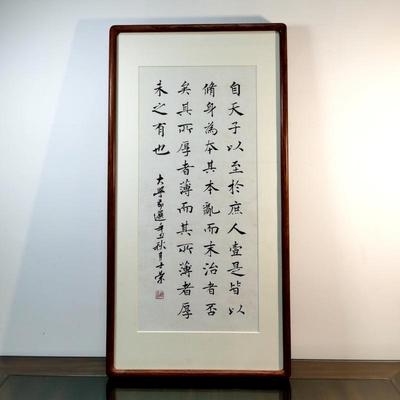 自天子以至於庶人壹是皆以
脩身為本其本亂而末治者否
矣其所厚者薄而其所薄者厚
未之有也
大學選辛丑秋月